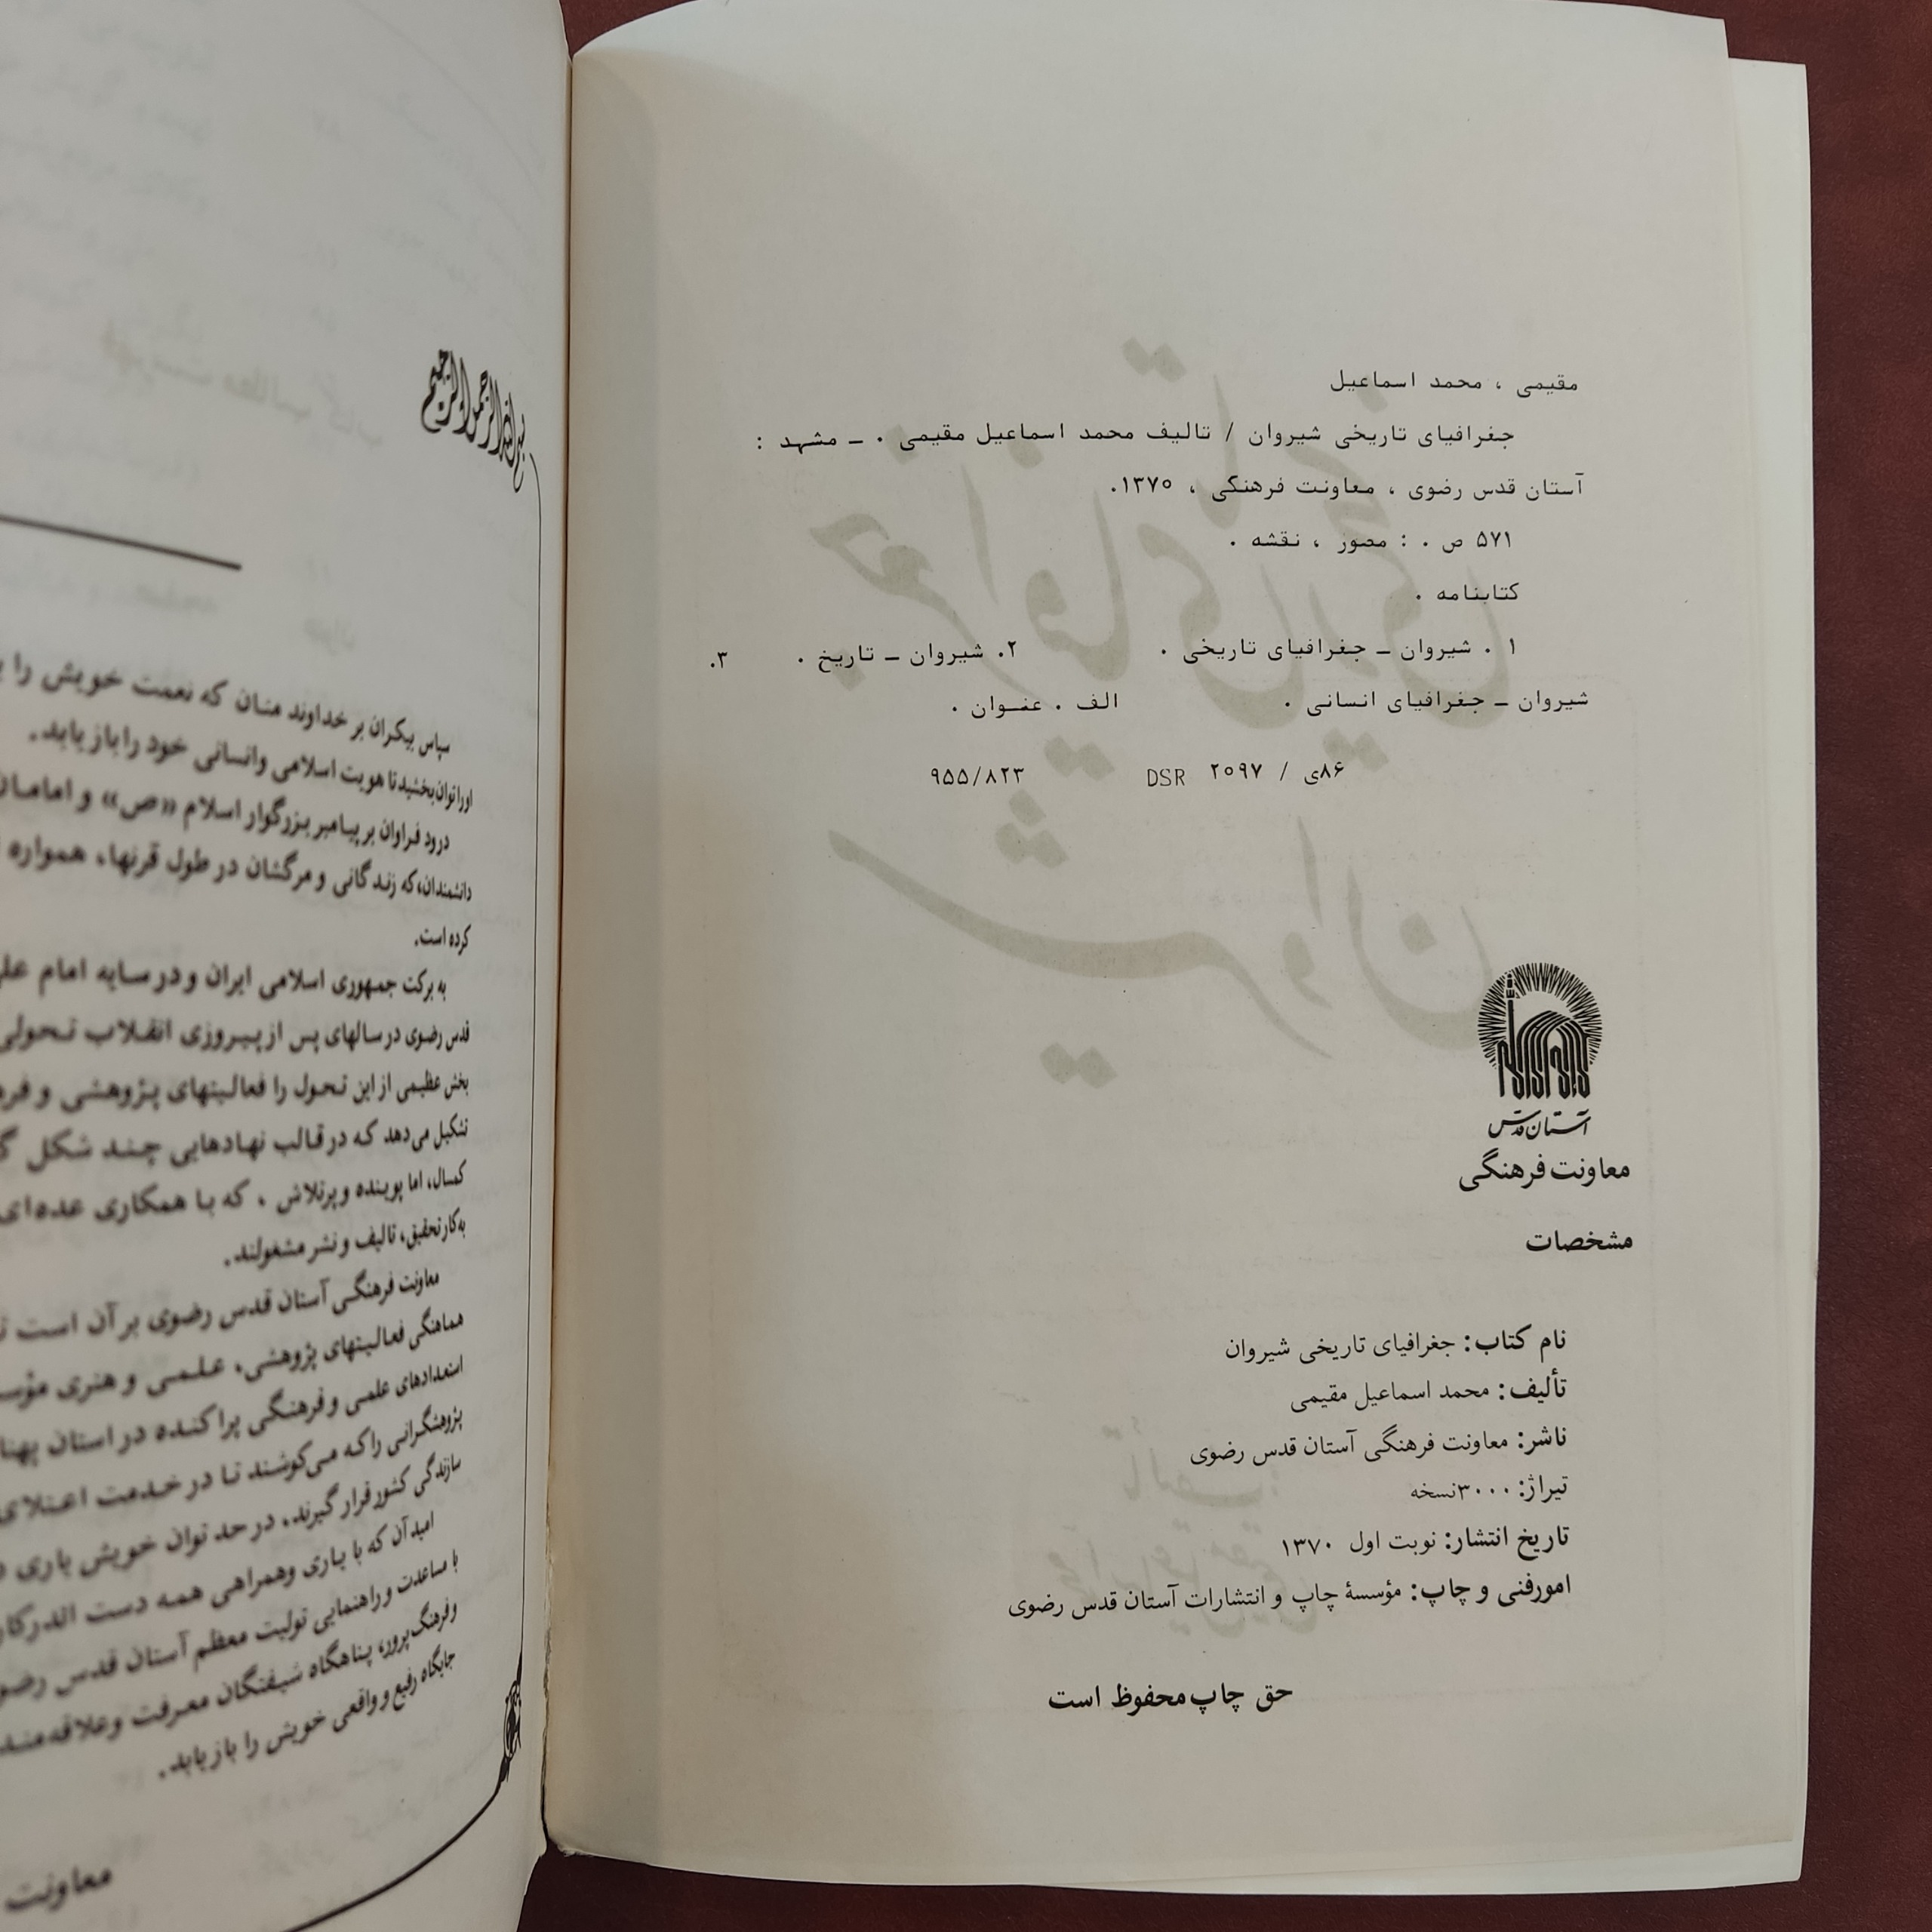 مقیمی ، محمد اسماعیل
جغرافیای تاریخی شیروان / تالیف محمد اسماعیل مقیمی . ـ مشهد :
آستان قدس رضوی ، معاونت فرهنگی ، ۱۳۷۰.
۵۷۱ ص . : مصور ، نقشه .
کتابنامه .
۱ . شیروان ـ جغرافیای تاریخی . ۲. شیروان ـ تاریخ . ۳.
شیروان ـ جغرافیای انسانی . الف . عنوان .
۸۶ی / ۲۰۹۷ DSR ۹۵۵/۸۲۳
آستان قدس
معاونت فرهنگی
مشخصات
نام کتاب: جغرافیای تاریخی شیروان
تألیف: محمد اسماعیل مقیمی
ناشر: معاونت فرهنگی آستان قدس رضوی
تیراژ: ۳۰۰۰نسخه
تاریخ انتشار: نوبت اول ۱۳۷۰
امورفنی و چاپ: مؤسسهٔ چاپ و انتشارات آستان قدس رضوی
حق چاپ محفوظ است
بسم الله الرحمن الرحیم
سپاس بیکران بر خداوند منان که نعمت خویش را
اورا توان بخشید تا هویت اسلامی وانسانی خود را بازیابد.
درود فراوان بر پیامبر بزرگوار اسلام «ص» و امامان
دانشمندان، که زندگانی و مرگشان در طول قرنها، همواره
کرده است.
به برکت جمهوری اسلامی ایران و در سایه امام
قدس رضوی در سالهای پس از پیروزی انقلاب تحولی
بخش عظیمی از این تحول را فعالیتهای پژوهشی و
تشکیل می‌دهد که در قالب نهادهایی چند شکل
کمسال، اما پوینده و پرتلاش ، که با همکاری عده‌ای
به کار تحقیق، تالیف و نشر مشغولند.
معاونت فرهنگی آستان قدس رضوی بر آن است
هماهنگی فعالیتهای پژوهشی، علمی و هنری
استعدادهای علمی و فرهنگی پراکنده در استان
پژوهشگرانی را که می‌کوشند تا در خدمت اعتلای
سازندگی کشور قرار گیرند، در حد توان خویش یاری
امید آن که با یاری وهمراهی همه دست اندرکار
با مساعدت و راهنمایی تولیت معظم آستان قدس
و فرهنگ پرور، پناهگاه شیفتگان معرفت و
جایگاه رفیع و واقعی خویش را بازیابد.
معاونت